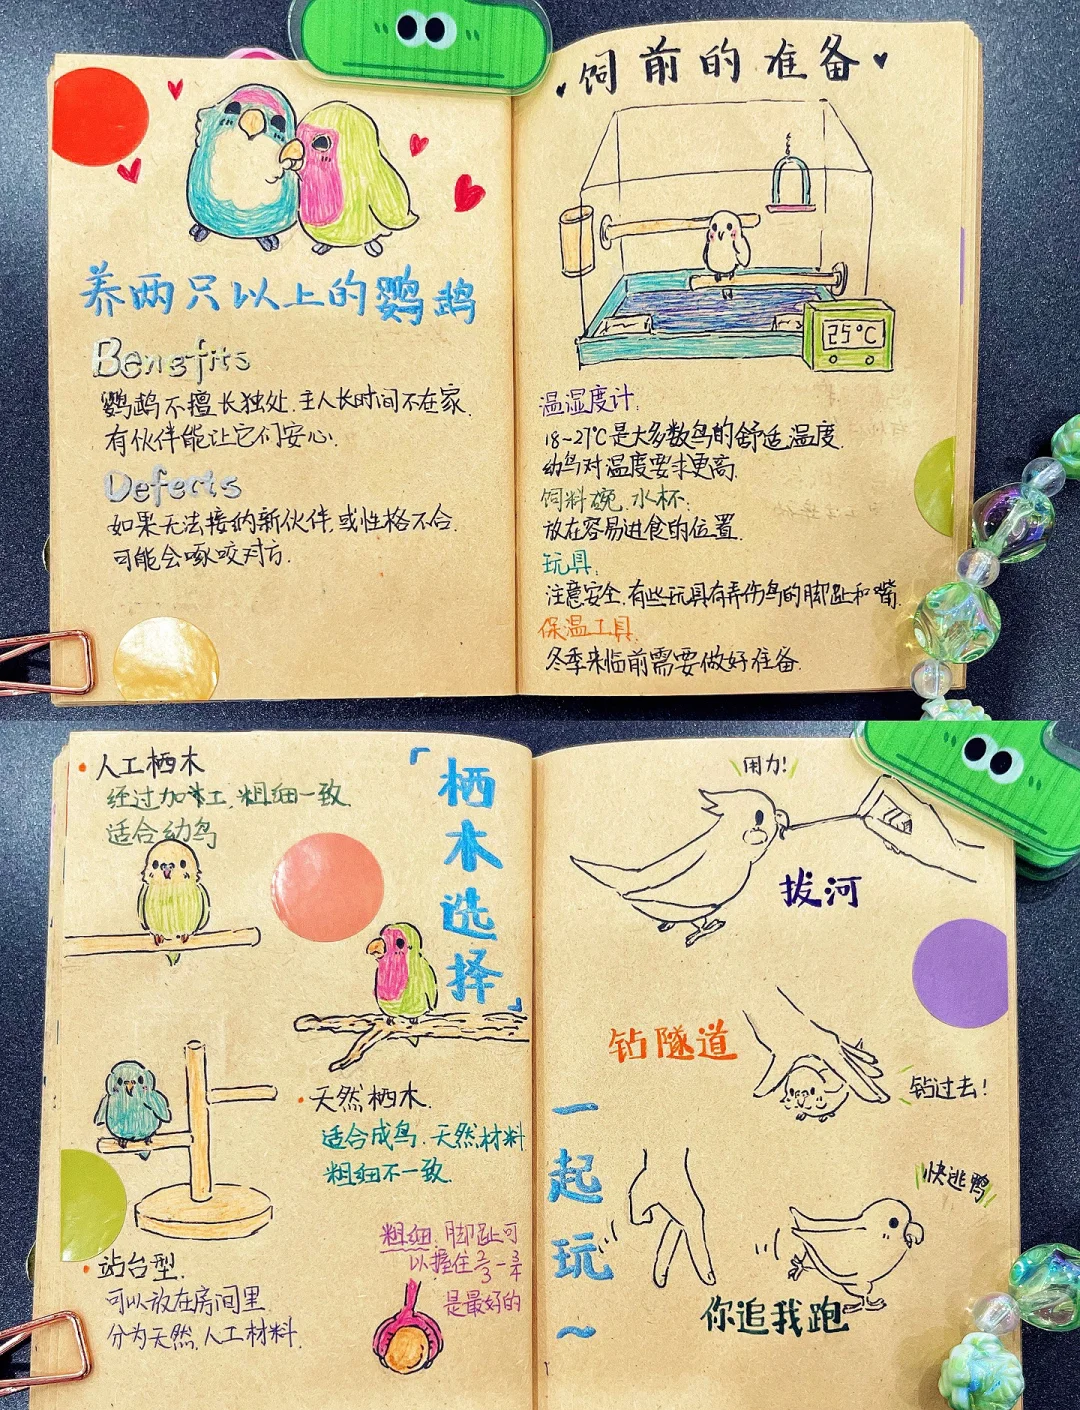 养两只以上的鹦鹉
Benefits
鹦鹉不擅长独处.主人长时间不在家.
有伙伴能让它们安心.
Defects
如果无法接纳新伙伴,或性格不合.
可能会啄咬对方.
饲前的准备
25℃
温湿度计:
18~27℃是大多数鸟的舒适温度.
幼鸟对温度要求更高.
饲料碗.水杯:
放在容易进食的位置.
玩具:
注意安全.有些玩具有弄伤鸟的脚趾和嘴.
保温工具.
冬季来临前需要做好准备.
人工栖木
经过加工.粗细一致.
适合幼鸟
「栖木选择」
天然栖木.
适合成鸟.天然材料
粗细不一致.
站台型.
可以放在房间里
分为天然.人工材料.
粗细.脚趾可
以握住2/3-3/4
是最好的
用力!
拔河
钻隧道
钻过去!
一起玩~
快逃鸭
你追我跑